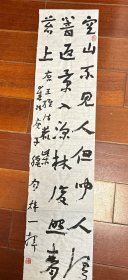 空山不見人但聞人語
響返景入深林復照青
苔上 唐王維詩鹿柴
庚子